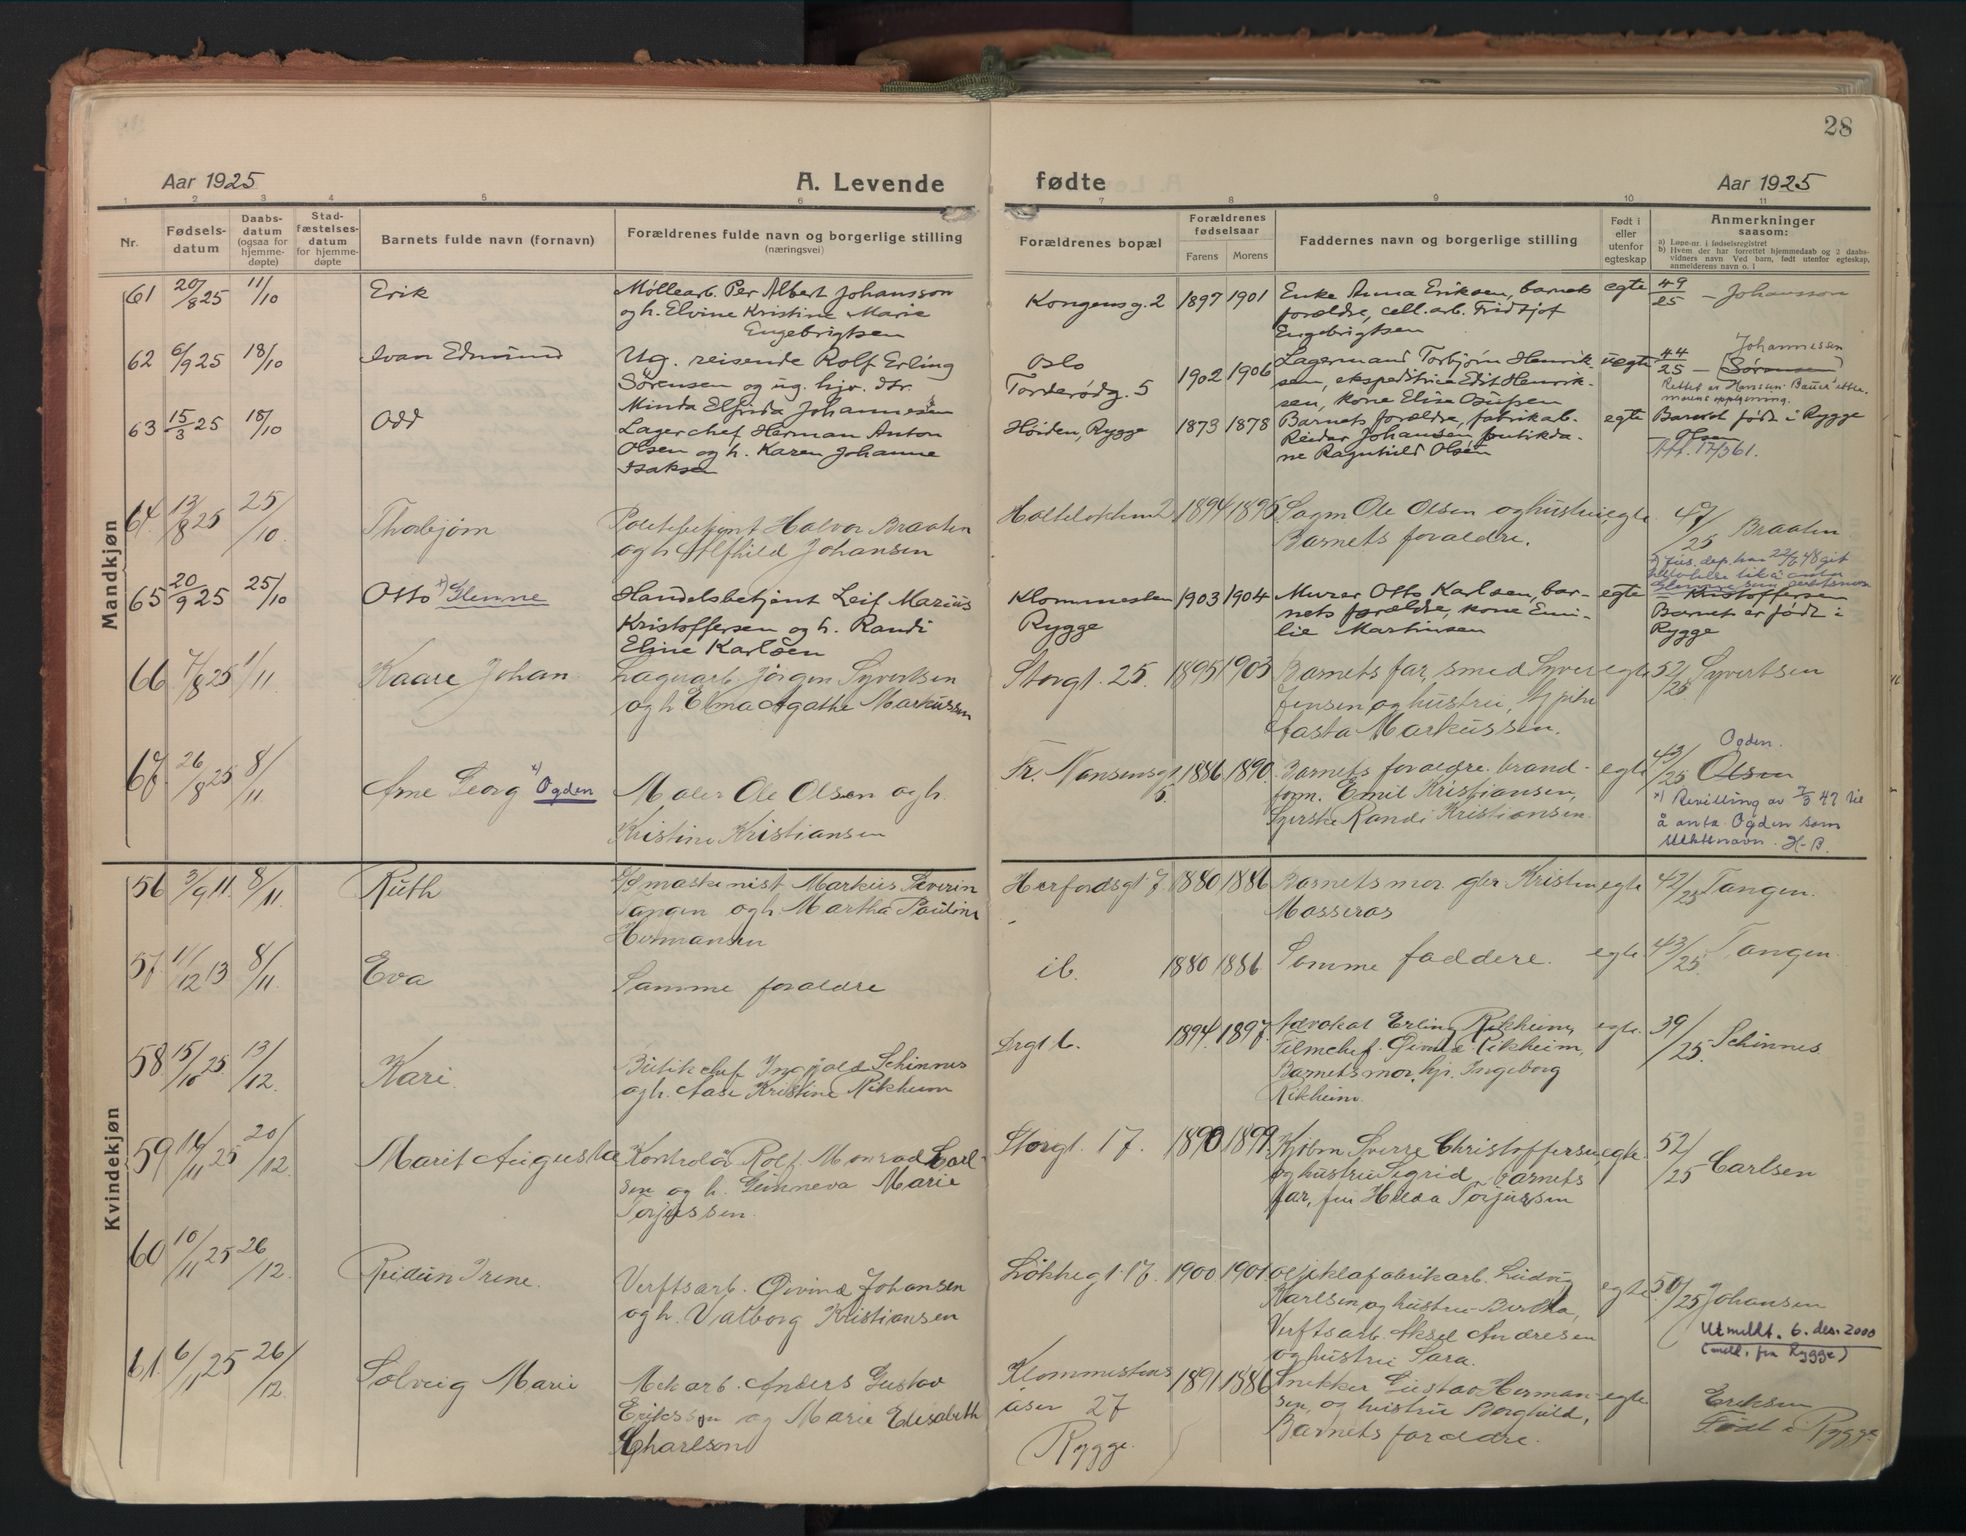 28
Aar 1925
A. Levende
fødte
Aar 1925
1 2 3 4 5 6 7 8 9 10 11
Nr.
Fødsels-
datum
Daabs-
datum
(ogsaa for
hjemme-
døpte)
Stad-
fæstelses-
datum
for hjemme-
døpte
Barnets fulde navn (fornavn)
Forældrenes fulde navn og borgerlige stilling
(næringsvei)
Forældrenes bopæl
Forældrenes
fødselsaar
Farens
Morens
Faddernes navn og borgerlige stilling
Født i
eller
utenfor
egteskap
Anmerkninger
saasom:
a) Løpe-nr. i fødselsregistret
b) Hvem der har forrettet hjemmedaab og 2 daabs-
vidners navn Ved barn, født utenfor egteskap,
anmelderens navn o. l
Mandkjøn
61 20/8 25 11/10 Erik
Møllearb. Per Albert Johansson
og h. Elvine Kristine Marie
Engebrigtsen
Kongensg. 2 1897 1901
Enke Anna Eriksen, barnets
forældre, cell. arb. Fridtjof
Engebrigtsen
egte 49/25 - Johansson
62 6/9 25 18/10 Ivan Edmund
Ug. reisende Rolf Erling
Sørensen og ug. hjv. dtr.
Minda Elfrida Johannesen
Oslo
Torderødg. 5 1902 1906
Lagermand Torbjørn Henrik-
sen, ekspeditrice Edit Henrik-
sen, kone Elise
uegte 44/25 - Johannessen
(Sørensen)
63 15/3 25 18/10 Odd
Lagerchef Herman Anton
Olsen og h. Karen Johanne
Isaksen
Høiden, Rygge 1873 1878
Barnets forældre, fabrikab.
Reidar Johansen, butikda-
me Ragnhild Olsen
egte Barnet født i Rygge
Olsen
Att. 17/3 61.
64. 13/8 25 25/10 Thorbjørn
Politibetjent Halvor Braaten
og h Alfhild Johansen
1894 1895
Sagm Ole Olsen og hustru,
Barnets forældre.
egte 47/25 Braaten
65 20/9 25 25/10 Otto x) Glenne
Handelsbetjent Leif Marius
Kristoffersen og h. Randi
Eline Karlsen
Klommesten
Rygge 1903 1904
Murer Otto Karlsen, bar-
nets forældre, kone Emi-
lie Martinsen
egte
x) Jus. dep. har 22/6 48 git
Glenne som
Kristoffersen
Barnet er født i
Rygge
66 7/8 25 1/11 Kaare Johan
Lagerarb. Jørgen Syvertsen
og h Elma Agathe Markussen
Storgt. 25. 1895 1903
Barnets far, smed Syver
Jensen og hustru,
Aasta Markussen.
egte 52/25 Syvertsen
67. 26/8 25 8/11 Arne Georg x) Ogden
Maler Ole Olsen og h.
Kristine Kristiansen
Fr. Nansensgt
5. 1886 1890.
Barnets forældre. brand-
form. Emil Kristiansen,
Syerske Randi Kristiansen.
egte 43/25 Ogden.
Olsen
x) Bevilling av 7/3 47 til
å anta Ogden som
slektsnavn. H-B.
Kvindekjøn
56 3/9 11. 8/11. Ruth
maskinist Markus Severin
Tangen og h. Martha Pauline
Hermansen
Herfordsgt 7 1880 1886
Barnets mor, Kristin
Mosserøs
egte 42/25 Tangen.
57. 1/12 13 8/11. Eva
Samme forældre
ib. 1880 1886
Samme faddere.
egte 43/25. Tangen.
58. 15/10 25. 13/12 Kari.
Butikchef Ingjald Schinnes
og h. Aase Kristine Rikheim
1894. 1897.
Advokat Erling Rikheim,
Filmchef Øivind Rikheim,
Barnets mor, hjv. Ingeborg
Rikheim.
egte. 39/25. Schinnes
59 14/11 25 20/12. Marit Augusta
Kontrolør Rolf Monrad Carl-
sen og h. Gunneva Marie
Torjussen.
Storgt. 17. 1890 1899.
Kjøbm Sverre Christoffersen,
og hustru Sigrid, barnets
far, fru Hilda Torjussen
egte. 52/25 Carlsen
60 10/11 25 26/12. Reidun Irene.
Verftsarb. Øivind Johansen
og h. Valborg Kristiansen
Løkkegt. 17. 1900 1901
Oljeklæfabrikarb. Ludvig
Karlsen, og hustru Bertha,
Verftsarb. Aksel Andresen
og hustru Sara.
egte. 50/25 Johansen
Utmeldt. 6. des. 2000
(medl. fra Rygge)
61. 6/11 25 26/12. Solveig Marie
Mek arb. Anders Gustav
Eriksson og Marie Elisabeth
Charlson
Klommestens
åsen 27
Rygge. 1891 1886
Snekker Gustav Herman-
sen, og hustru Borghild,
Barnets forældre.
egte Eriksson
Født i Rygge